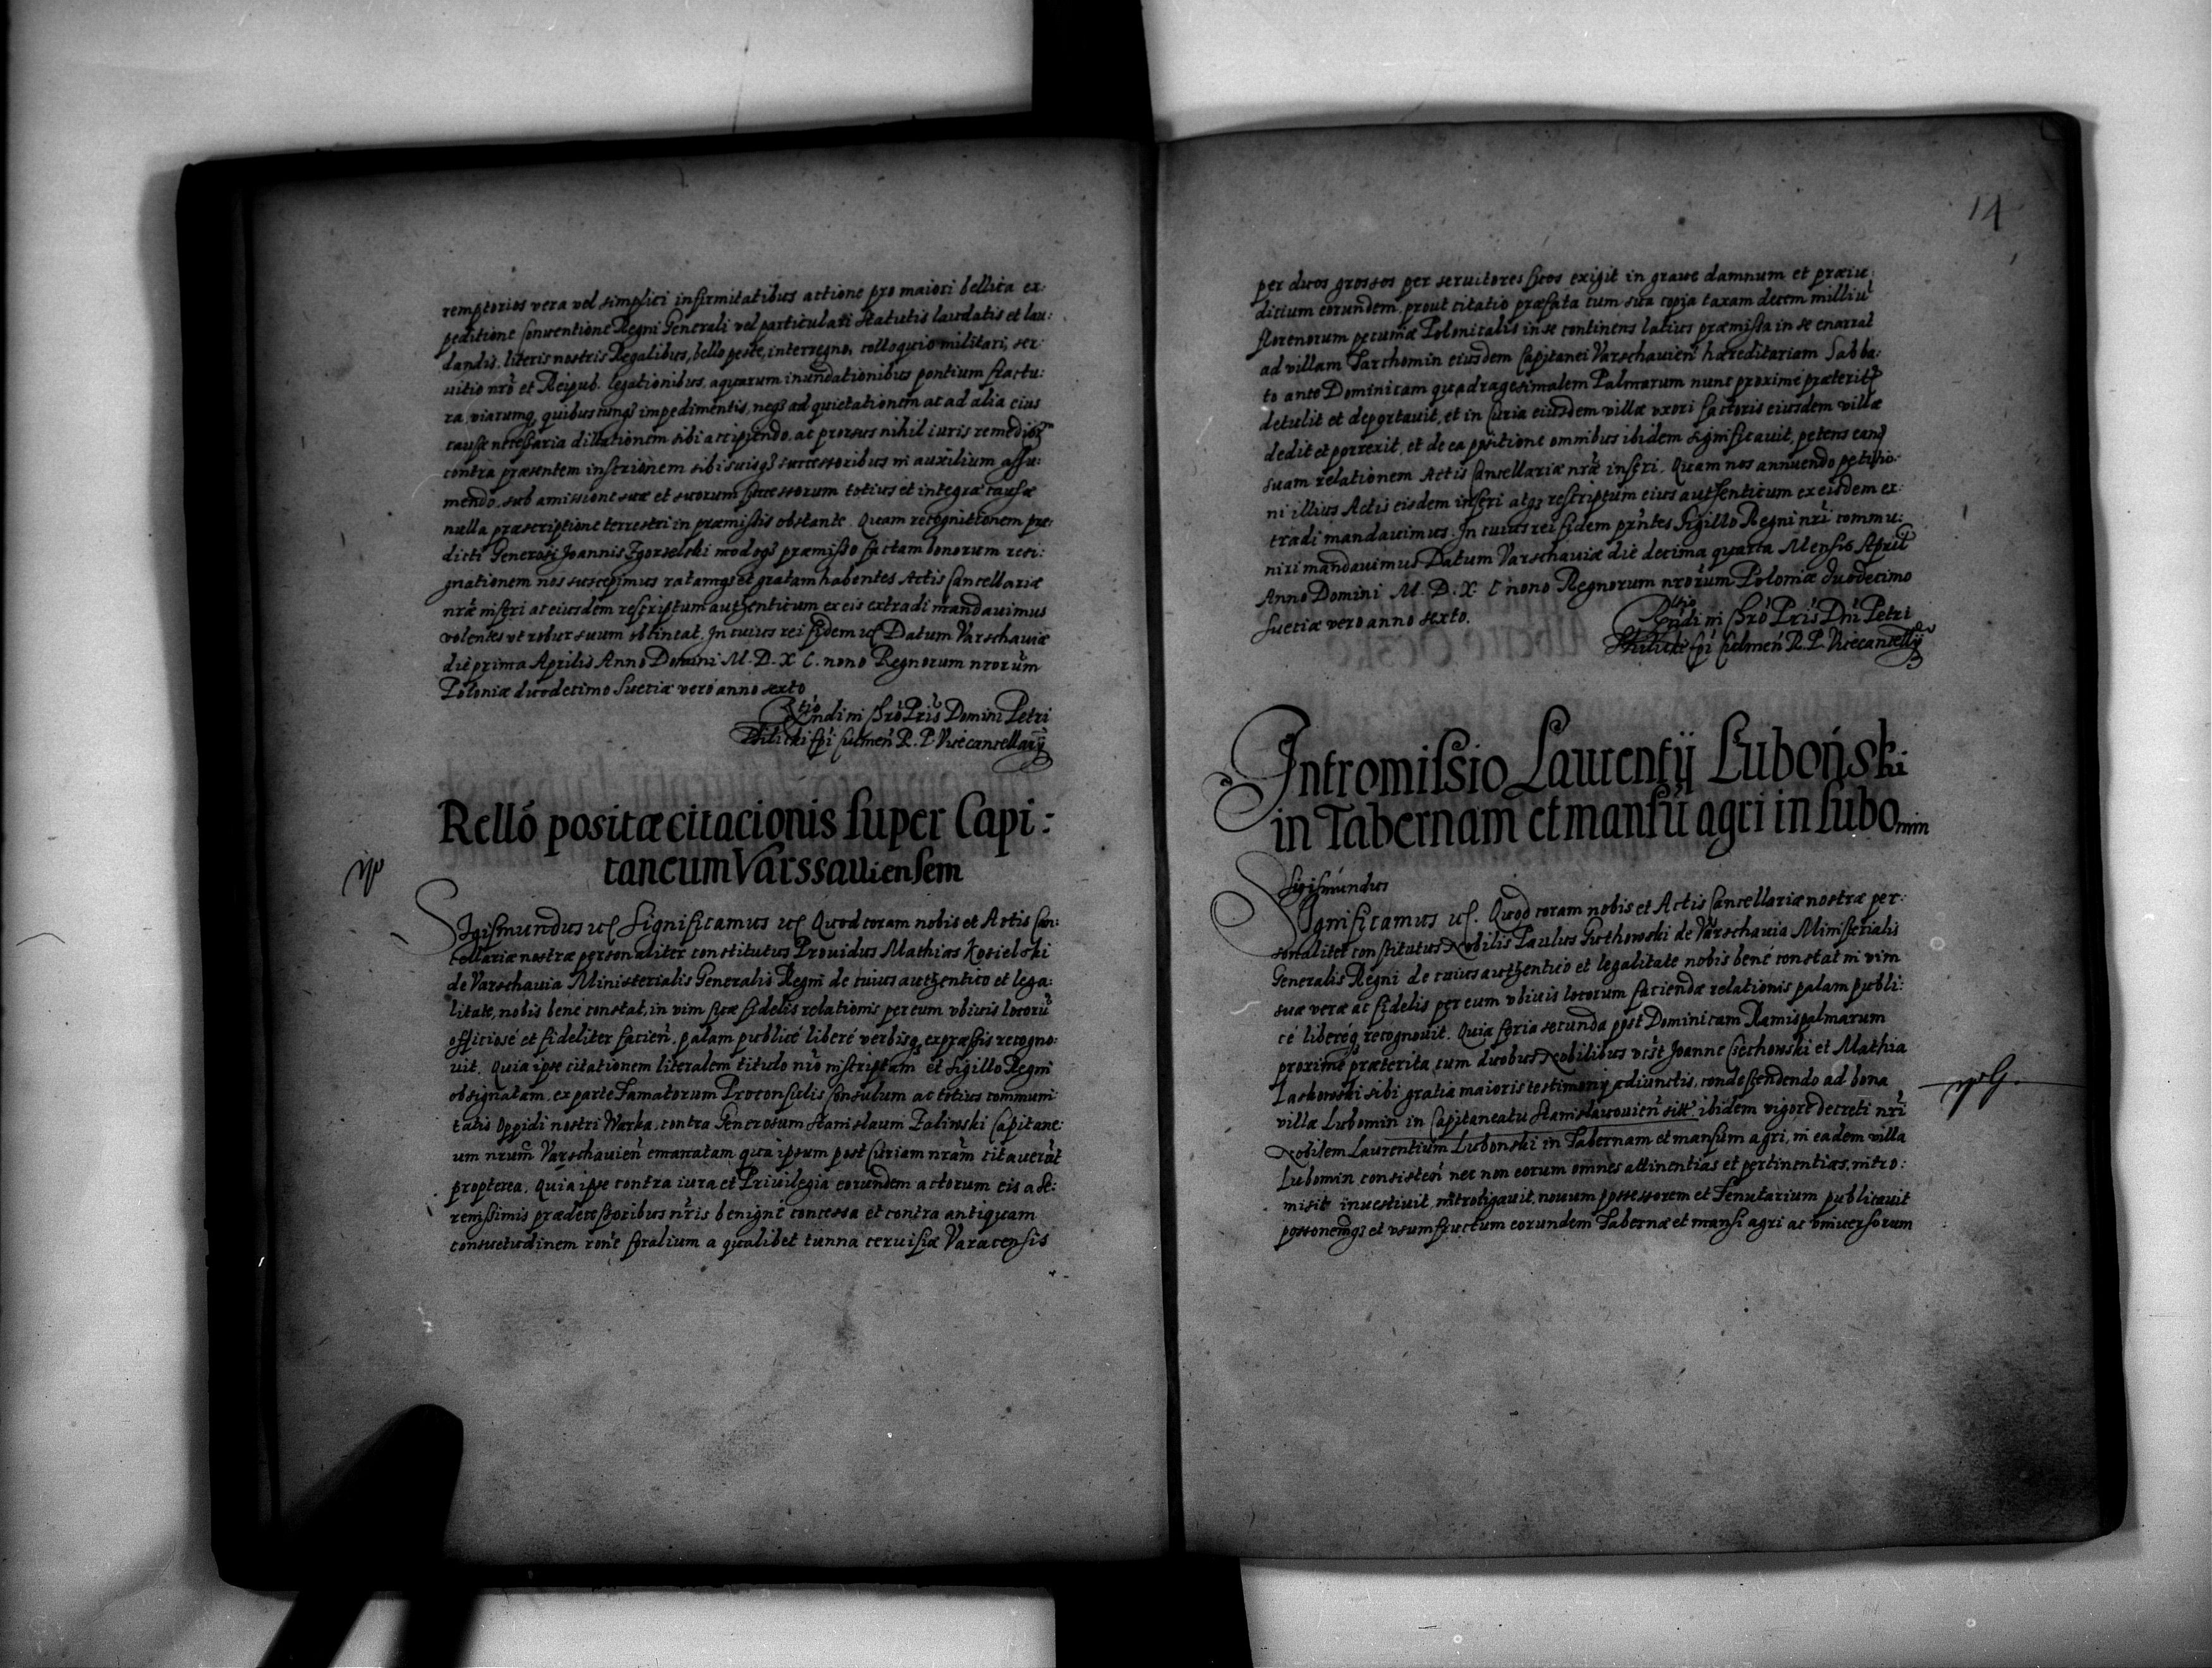 remptorios vera vel simplici infirmitatibus actione pro maiori bellica ex:
peditione conventione Regni Generali vel particulari statutis laudatis et lau:
dandis, literis nostris Regalibus, bello peste, interregno, colloquio militari, ser:
uitio nrõ et Reipub. legationibus, aquarum inundationibus pontium fractu:
ra, viarumq, quibuscunq impedimentis, neq ad quietationem ac ad alia eius
causæ necessaria dillationem sibi accipiendo, ac prorsus nihil iuris remedior
contra præsentem inscrionem sibi suisq successoribus in auxilium assu:
mendo, sub amissione suæ et suorum successorum totius et integræ causæ
nulla præscriptione terrestri in præmissis obstante. Quam recognitionem præ:
dicti Generosi Joannis Zgorzelski modoq præmisso factam bonorum resi:
gnationem nos suscepimus ratamq et gratam habentes Actis Cancellariæ
nræ inseri ac eiusdem rescriptum authenticum ex eis extradi mandauimus
volentes vt robur suum obtineat. In cuius rei fidem etc Datum Varschauiæ
die prima Aprilis Anno Domini M. D. X C. nono Regnorum nrorum
Poloniæ duodecimo Sueciæ vero anno sexto
Rltio Rndi in Chrõ Pris Domini Petri
Tilicki Epi Culmen R. P. Vicecancellarij
Relló positæ citacionis super Capi:
taneum Varssauiensem
Sigismundus etc Significamus etc Quod coram nobis et Actis Can:
cellariæ nostræ personaliter constitutus Prouidus Mathias Kosielski
de Varschauia Ministerialis Generalis Regni de cuius authentico et lega:
litate, nobis bene constat, in vim suæ fidelis relationis per eum vbiuis locorũ
officiosé et fideliter facien, palam publicé liberé verbisq expræssis recogno:
uit. Quia ipse citationem literalem titulo nrõ inscriptam et sigillo Regni
obsignatam, ex parte Famatorum Proconsulis Consulum ac totius communi:
tatis Oppidi nostri Warka, contra Generosum Stanislaum Zalinski Capitane:
um nrum Varschauien emanatam qua ipsum post Curiam nram citauerãt
propterea, Quia ipse contra iura et Priuilegia eorundem actorum eis a Se:
renissimis prædecessoribus nris benigné concessa et contra antiquam
consuetudinem rone foralium a qualibet tunna ceruisiæ Varacensis
14
per duos grossos per seruitores suos exigit in graue damnum et præiu:
dicium eorundem, prout citatio præfata cum sua copia taxam decem milliũ
florenorum pecuniæ Polonicalis in se continens latius præmissa in se enarrat
ad villam Tarchomin eiusdem Capitanei Varschauien hæreditariam Sabba:
to ante Dominicam quadragesimalem Palmarum nunc proximé præterit
detulit et deportauit, et in Curia eiusdem villæ vxori factoris eiusdem villæ
dedit et porrexit, et de ea positione omnibus ibidem significauit, petens eanq
suam relationem Actis Cancellariæ nræ inseri. Quam nos annuendo petitio:
ni illius Actis eisdem inseri atq rescriptum eius authenticum ex eisdem ex:
tradi mandauimus. In cuius rei fidem prntes Sigillo Regni nri commu:
niri mandauimus Datum Varschauiæ die decima quarta Mensis April
Anno Domini M. D. X. C nono Regnorum nrorum Poloniæ duodecimo
Sueciæ vero anno sexto.
Rltio Rndi in Chrõ Pris Dni Petri
Tilicki Epi Culmen R. P. Vicecancellij
Intromissio Laurentij Luboński
in Tabernam et mansũ agri in Lubomin
Sigismundus
Significamus etc. Quod coram nobis et Actis Cancellariæ nostræ per:
sonaliter constitutus Nobilis Paulus Guthowski de Varschauia Ministerialis
Generalis Regni de cuius authentico et legalitate nobis bené constat in vim
suæ veræ ac fidelis per eum vbiuis locorum faciendæ relationis palam publi:
cé liberéq recognouit. Quia feria secunda post Dominicam Ramispalmarum
proximé præterita cum duobus Nobilibus vcst Joanne Czechowski et Mathia
Laskowski sibi gratia maioris testimonij adiunctis, condescendendo ad bona
villæ Lubomin in Capitaneatu Stanislawouien sitæ ibidem vigore decreti nri
Nobilem Laurentium Lubonski in Tabernam et mansum agri, in eadem villa
Lubomin consisten nec non eorum omnes attinentias et pertinentias, intro:
misit inuestiuit, introligauit, nouum possessorem et Tenutarium publicauit
possonemq et vsumfructum eorundem Tabernæ et mansi agri ac vniuersorum